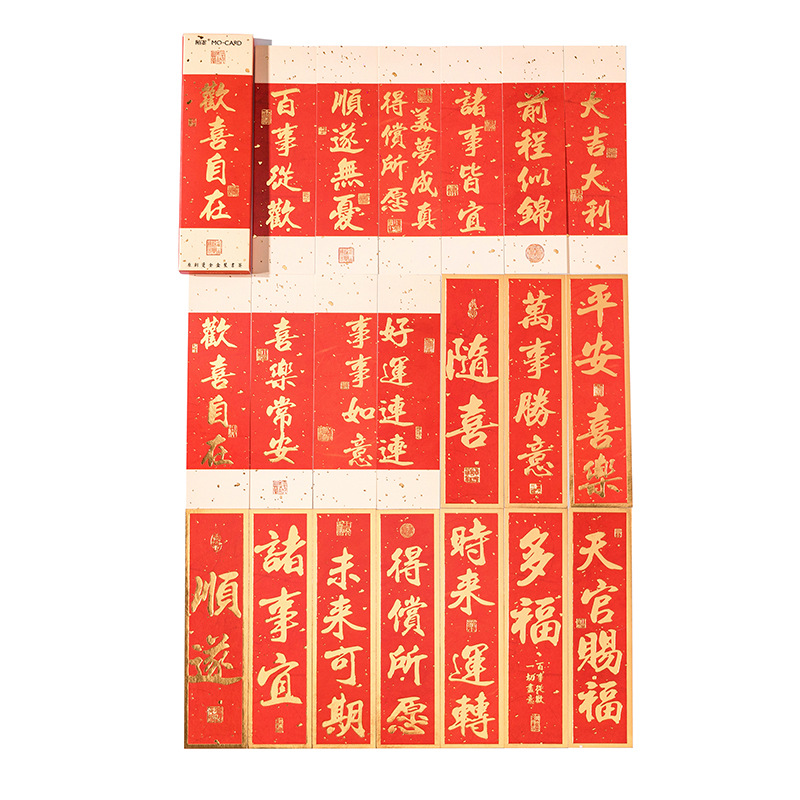 MO·CARD
歡喜自在
百事從歡
順遂無憂
美夢成真
得償所愿
諸事皆宜
前程似錦
大吉大利
歡喜自在
喜樂常安
事事如意
好運連連
隨喜
萬事勝意
平安喜樂
順遂
諸事宜
未来可期
得償所愿
時来運轉
多福
百事從歡
一切盡意
天官賜福